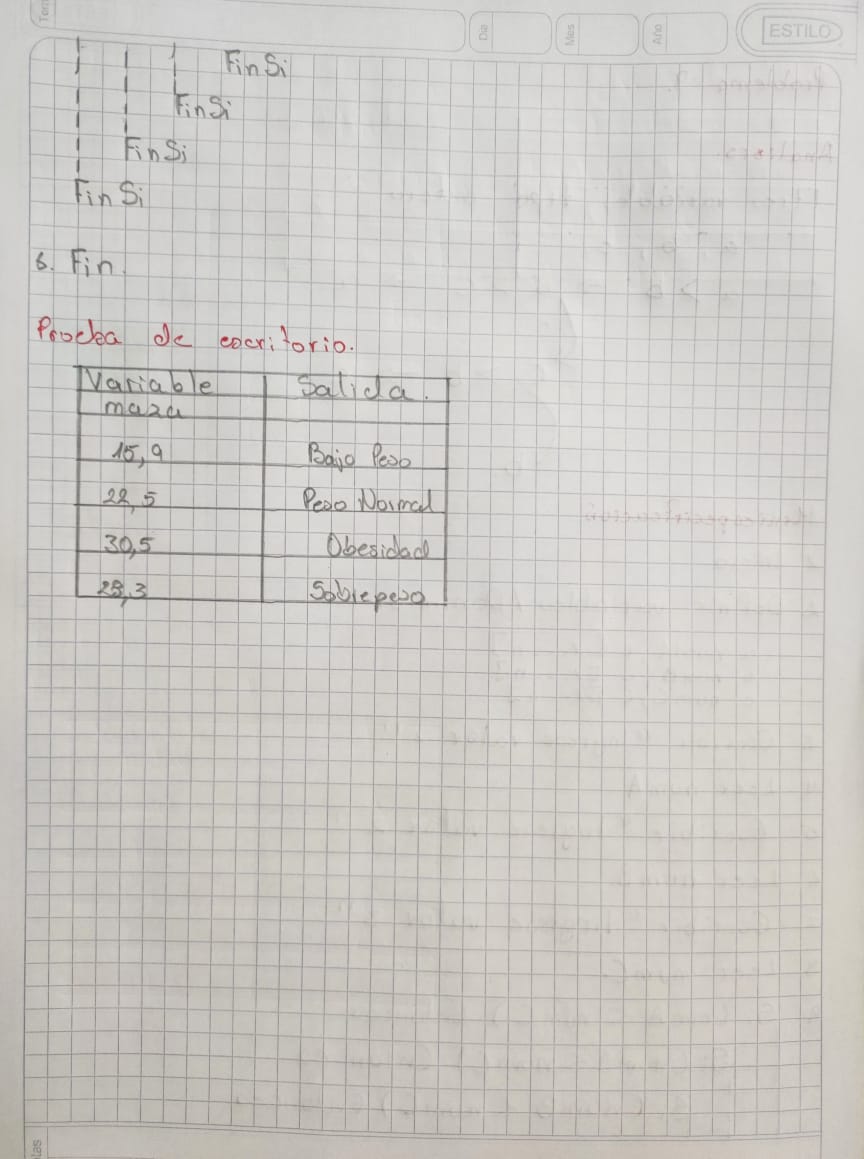 Tem
Dia
Mes
Año
ESTILO
FinSi
FinSi
FinSi
FinSi
6. Fin.
Prueba de escritorio.
Variable Salida.
maza
15,9 Bajo Peso
22,5 Peso Normal
30,5 Obesidad
Sobrepeso
tas